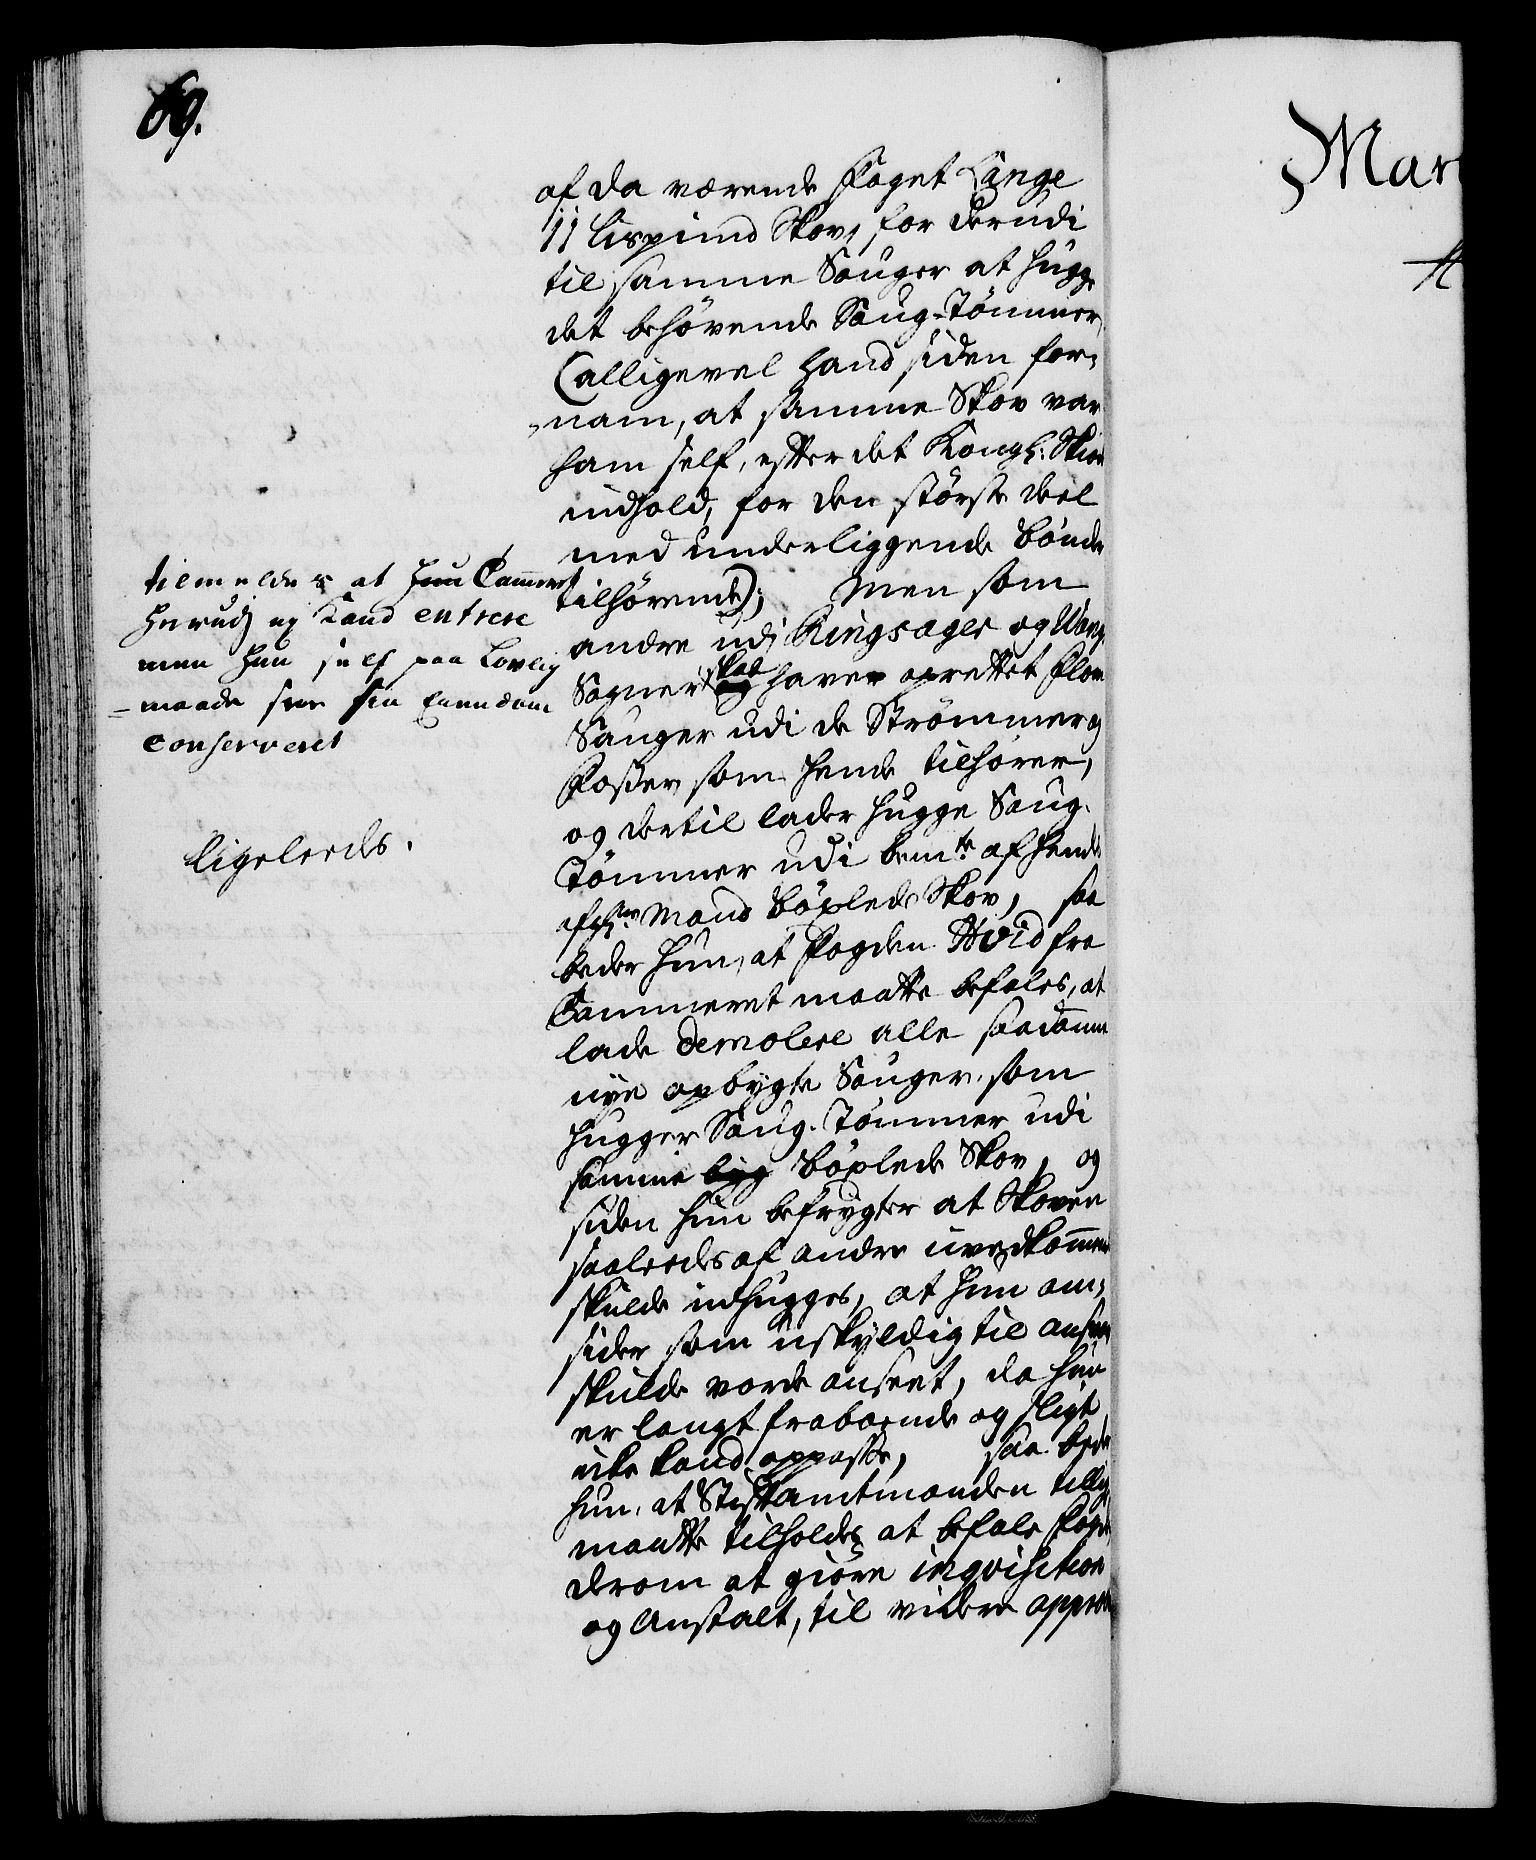 69.
af da værende Foget Lange
11 Lispund Skov, for derudi
til samme Sauger at hugge
det behövende Saug-Tömmer,
(alligevel hand siden for-
nam, at samme Skov var
ham self, efter det Kongl: Skiöd
indhold, for den störste deel
med underliggende Bönder
tilhörende); Men som
andre udj Ringsager og Wang
Sogner skal haver oprettet Flom
Sauger udi de Strömmer og
Fosser som hende tilhörer,
og dertil lader hugge Saug-
Tömmer udi bemte af hendes
afgl: Mand Böxlede Skov, saa
beder hun, at Fogden Hvid fra
Cammeret maatte befales, at
lade demolere alle saadanne
nye opbygte Sauger, som
hugger Saug-Tömmer udi
samme byg Böxlede Skov, og
siden hun befrygter at Skoven
saaleedes af andre uvedkommende
skulde udhugges, at hun om-
sider som uskyldig til ansvar
skulde vorde anseet, da hun
er langt fraboende og sligt
icke kand oppasse, saa beder
hun, at Stiftamtmanden tillige
maatte tilholdes at befale Fogden
derom at giöre inqvisition
og Anstalt, til videre approb
tilmeldes at hun Cammeret
herudj ey Kand entrere
men hun self paa Lovlig
maade sin Eyendom
conserveret
ligeleedes.
Mar